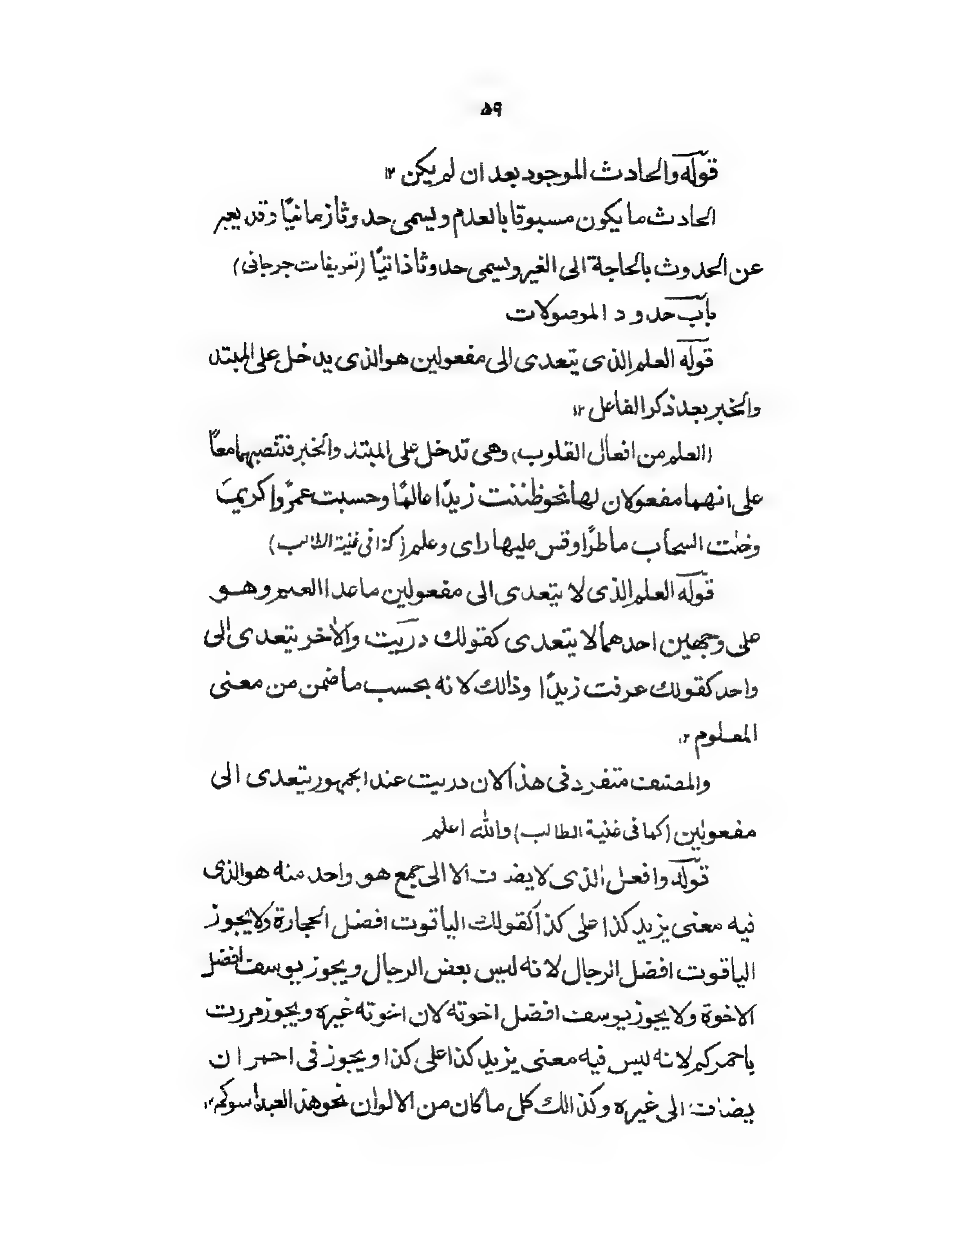 ۵۹
قوله والحادث الموجود بعد ان لم يكن ۱۲
الحادث ما يكون مسبوقا بالعدم ويسمى حدوثا زمانيًا وقد يعبر
عن الحدوث بالحاجة الى الغير ويسمى حدوثا ذاتيًا (تعريفات جرجانى)
باب حدود الموصولات
قوله العلم الذى يتعدى الى مفعولين هو الذى يدخل على المبتد
والخبر بعد ذكر الفاعل ۱۲
(العلم من افعال القلوب) وهى تدخل على المبتد والخبر فتنصبهما معاً
على انهما مفعولان لها نحو ظننت زيدًا عالمًا وحسبت عمرًوا كريمًا
وخلت السحاب ماطرًا وقس عليها راى وعلم (كذا فى غنية الطالب)
قوله العلم الذى لا يتعدى الى مفعولين ما عدا العلم وهو
على وجهين احدهما لا يتعدى كقولك دريت والاٰخر يتعدى الٰى
واحد كقولك عرفت زيدًا وذالك لانه بحسب ما ضمن من معنى
المعلوم ۱۲
والمصنف متفرد فى هذا لان دريت عند الجمهور يتعدى الى
مفعولين (كما فى غنية الطالب) والله اعلم
قوله وافعل الذى لا يضاف الا الى جمع هو واحد منه هو الذى
فيه معنى يزيد كذا على كذا كقولك الياقوت افضل الحجارة ولا يجوز
الياقوت افضل الرجال لانه ليس بعض الرجال ويجوز يوسف افضل
الاخوة ولا يجوز يوسف افضل اخوته لان اخوته غيره ويجوز مررت
باحمركم لانه ليس فيه معنى يزيد كذا على كذا ويجوز فى احمر ان
يضاف الى غيره وكذالك كل ما كان من الالوان نحو هذا العبد اسودكم ۱۲